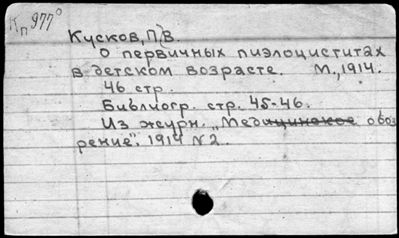 Кп 977°
Кусков, П.В.
О первичных пиэлоциститах
в детском возрасте. М., 1914.
46 стр.
Библиогр. стр. 45-46.
Из журн. „Медицинское обоз
рение". 1914 N2.